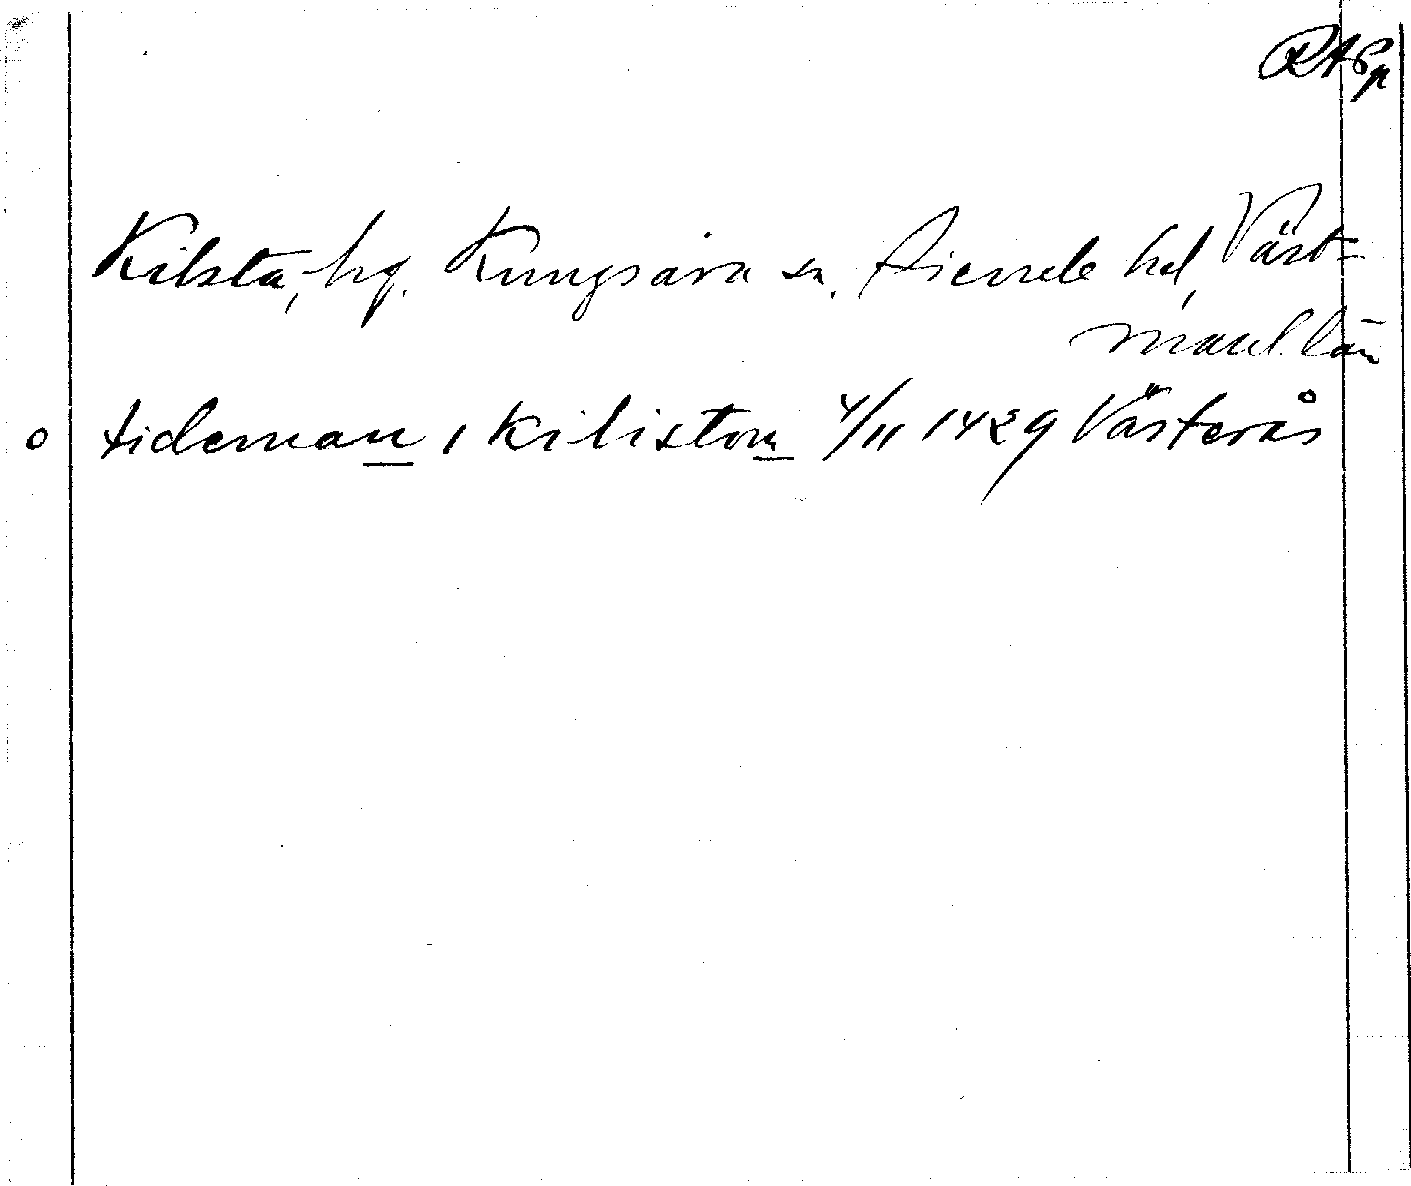 RAPp
Kilsta, hg. Kungsåra sn. Siende hd, Väst=
manl. län
o tideman i kilistom 4/11 1429 Västerås